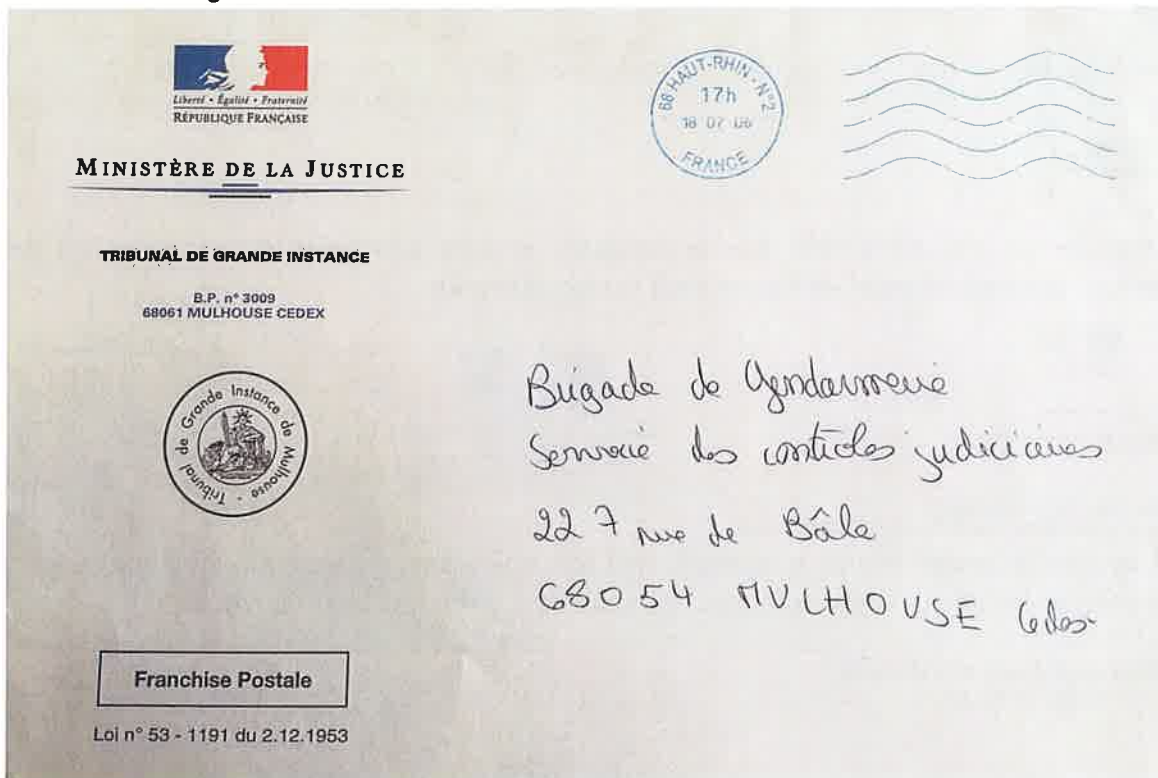 Liberté • Égalité • Fraternité
RÉPUBLIQUE FRANÇAISE
MINISTÈRE DE LA JUSTICE
TRIBUNAL DE GRANDE INSTANCE
B.P. n° 3009
68061 MULHOUSE CEDEX
Tribunal de Grande Instance de Mulhouse
Franchise Postale
Loi n° 53 - 1191 du 2.12.1953
68 HAUT-RHIN - N°2
17h
18 07 06
FRANCE
Brigade de Gendarmerie
Service des contrôles judiciaires
227 rue de Bâle
68054 MULHOUSE Cedex